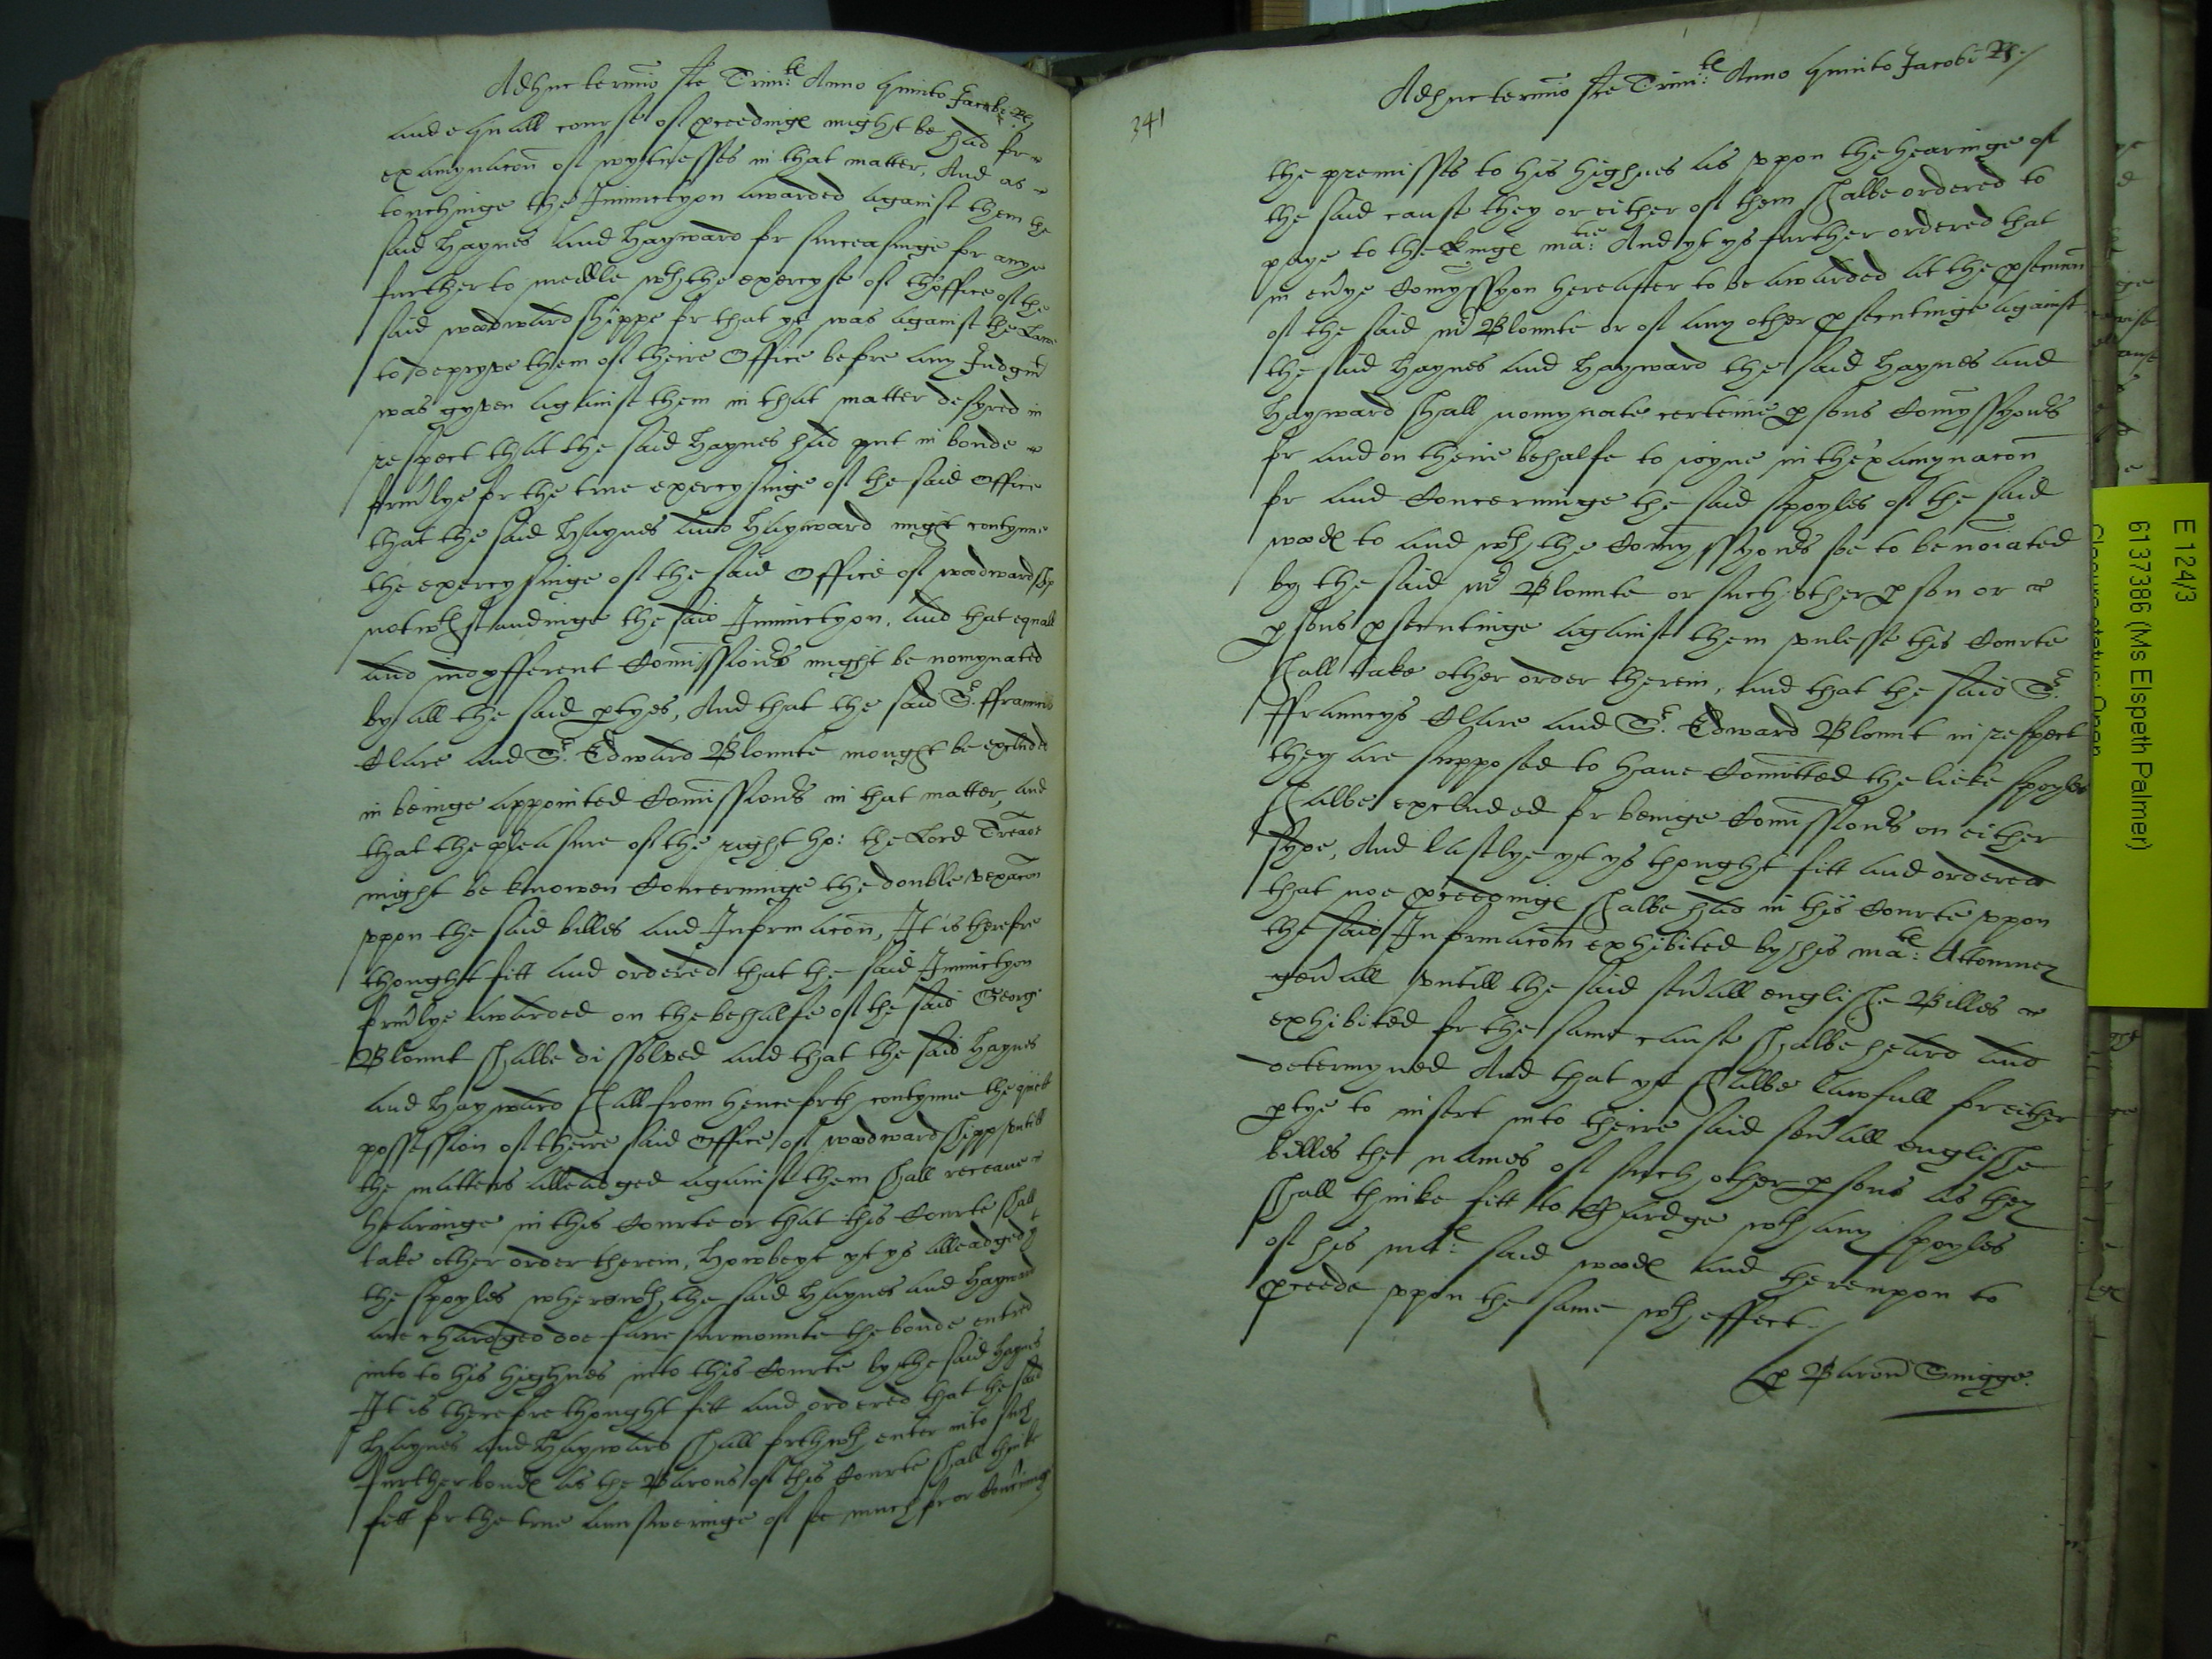 Adhuc termino ste Trin: te Anno quinto Jacobi R
and equall course of pceedinge might be had for
examynacon of wytnesses in that matter, And as
touchinge the Iniunctyon awarded against them the
said Haynes and Hayward for surceasinge for anye
further to meddle wth the exercyse of thoffice of the
said woodwardshippe for that yt was against the Lawe
to depryve them of theire Office before any Judgmt
was gyven against them in that matter desyred in
respect that the said Haynes had put in bonde
formlye for the true exercysinge of the said Office
that the said Haynes and Hayward might contynue
the exercysinge of the said Office of woodwardshp
notwthstandinge the said Iniunctyon, and that equall
and indyfferent Comissions might be nomynated
by all the said ptyes, And that the said Sr. ffrauncis
Clare and Sr. Edward Blounte mought be excluded
in beinge appointed Comissions in that matter, and
that the pleasure of the right ho: the Lord Treaor
might be knowen Concerninge the double vexacon
vppon the said billes and Informacon, It is therefore
thought fitt and ordered that the said Iniunctyon
formlye awarded on the behalfe of the said George
Blount shalbe dissolved and that the said Haynes
and Hayward shall from henceforth contynue the quiet
possession of theire said Office of woodwardshipp vntill
the matters alleadged against them shall receaue
hearinge in this Courte or that this Courte shall
take other order therein, Howbeyt yt ys alleadged yt
the spoyles wherewth the said Haynes and Hayward
are chardged doe farre surmounte the bonde entred
into to his highnes into this Courte by the said Haynes
It is therefore thought fitt and ordered that the said
Haynes and Hayward shall forthwth enter into such
further bondes as the Barons of this Courte shall thinke
fitt for the true aunsweringe of soe much for or Concerninge
341
Adhuc termino ste Trin: te Anno quinto Jacobi R
the premisses to his highnes as vppon the hearinge of
the said cause they or either of them shalbe ordered to
paye to the Kinges matie: And yt ys further ordered that
in eu'ye Comyssyon hereafter to be awarded at the psecucon
of the said mr Blounte or of any other psecutinge against
the said Haynes and Hayward the said Haynes and
Hayward shall nomynate certeine psons Comyssyons
for and on theire behalfe to ioyne in thexamynacon
for and Concerninge the said spoyles of the said
woodes to and wth the Comyssyons soe to be noiated
by the said mr Blounte or such other pson or
psons psecutinge against them vnlesse this Courte
shall take other order therein, and that the said Sr.
ffrauncys Clare and Sr. Edward Blount in respect
they are supposed to haue Comitted the lieke spoyles
shalbe excluded for beinge Comissions on either
syde, And lastlye yt ys thought fitt and ordered
that noe pceedinges shalbe had in this Courte vppon
the said Informacon exhibited by his mats: Attorney
gen'all vntill the said seu'all englishe Billes
exhibited for the same cause shalbe heard and
determyned And that yt shalbe lawfull for either
ptye to insert into theire said seu'all englishe
billes the names of such other psons as they
shall thinke fitt to chardge wth any spoyles
of his mats: said woodes and therevpon to
pceede vppon the same wth effect.
p Baron Snigge.
E 124/3
6137386 (Ms Elspeth Palmer)